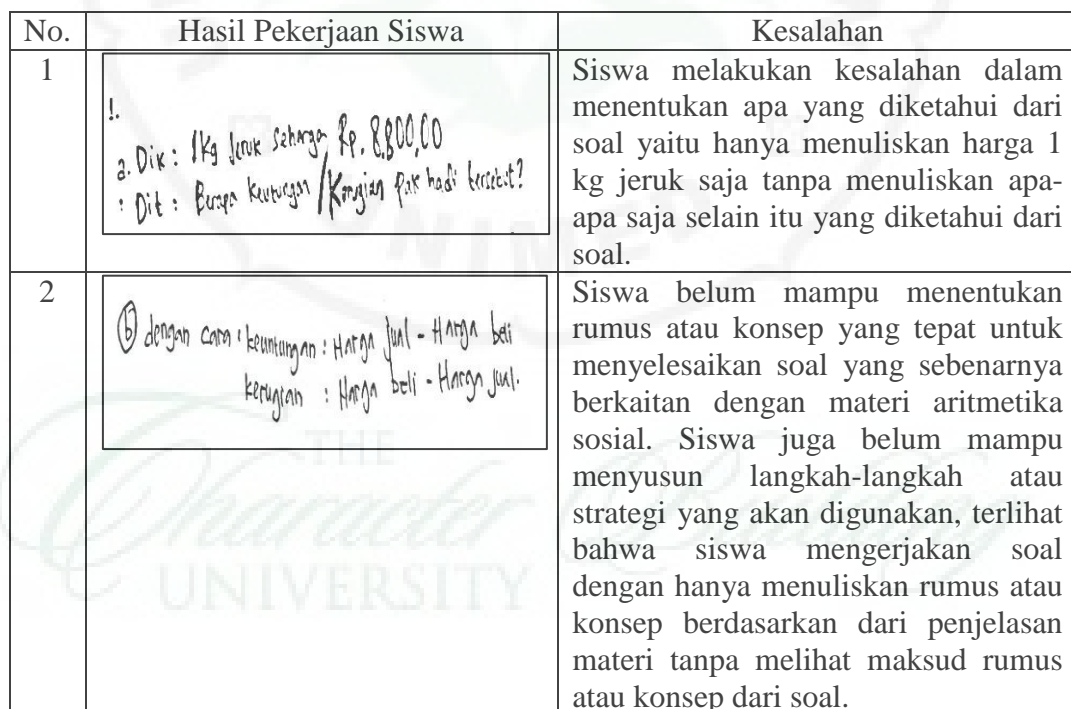 No. Hasil Pekerjaan Siswa Kesalahan
1
!.
a. Dik : 1Kg Jeruk seharga Rp. 8.800,00
: Dit : Berapa keuntungan / Kerugian Pak hadi tersebut?
Siswa melakukan kesalahan dalam
menentukan apa yang diketahui dari
soal yaitu hanya menuliskan harga 1
kg jeruk saja tanpa menuliskan apa-
apa saja selain itu yang diketahui dari
soal.
2
b dengan cara : keuntungan : Harga Jual - Harga beli
kerugian : Harga beli - Harga jual.
Siswa belum mampu menentukan
rumus atau konsep yang tepat untuk
menyelesaikan soal yang sebenarnya
berkaitan dengan materi aritmetika
sosial. Siswa juga belum mampu
menyusun langkah-langkah atau
strategi yang akan digunakan, terlihat
bahwa siswa mengerjakan soal
dengan hanya menuliskan rumus atau
konsep berdasarkan dari penjelasan
materi tanpa melihat maksud rumus
atau konsep dari soal.
UNIMED
THE
Character Building
UNIVERSITY